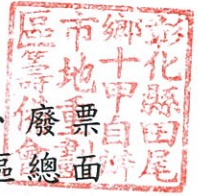 彰化縣田尾
鄉十甲自辦
市地重劃
區籌備會
廢票
區總面